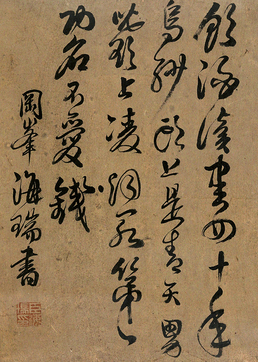 飲酒讀書四十年
烏紗頭上是青天男
兒欲上凌烟閣第一
功名不愛錢
峯海瑞書